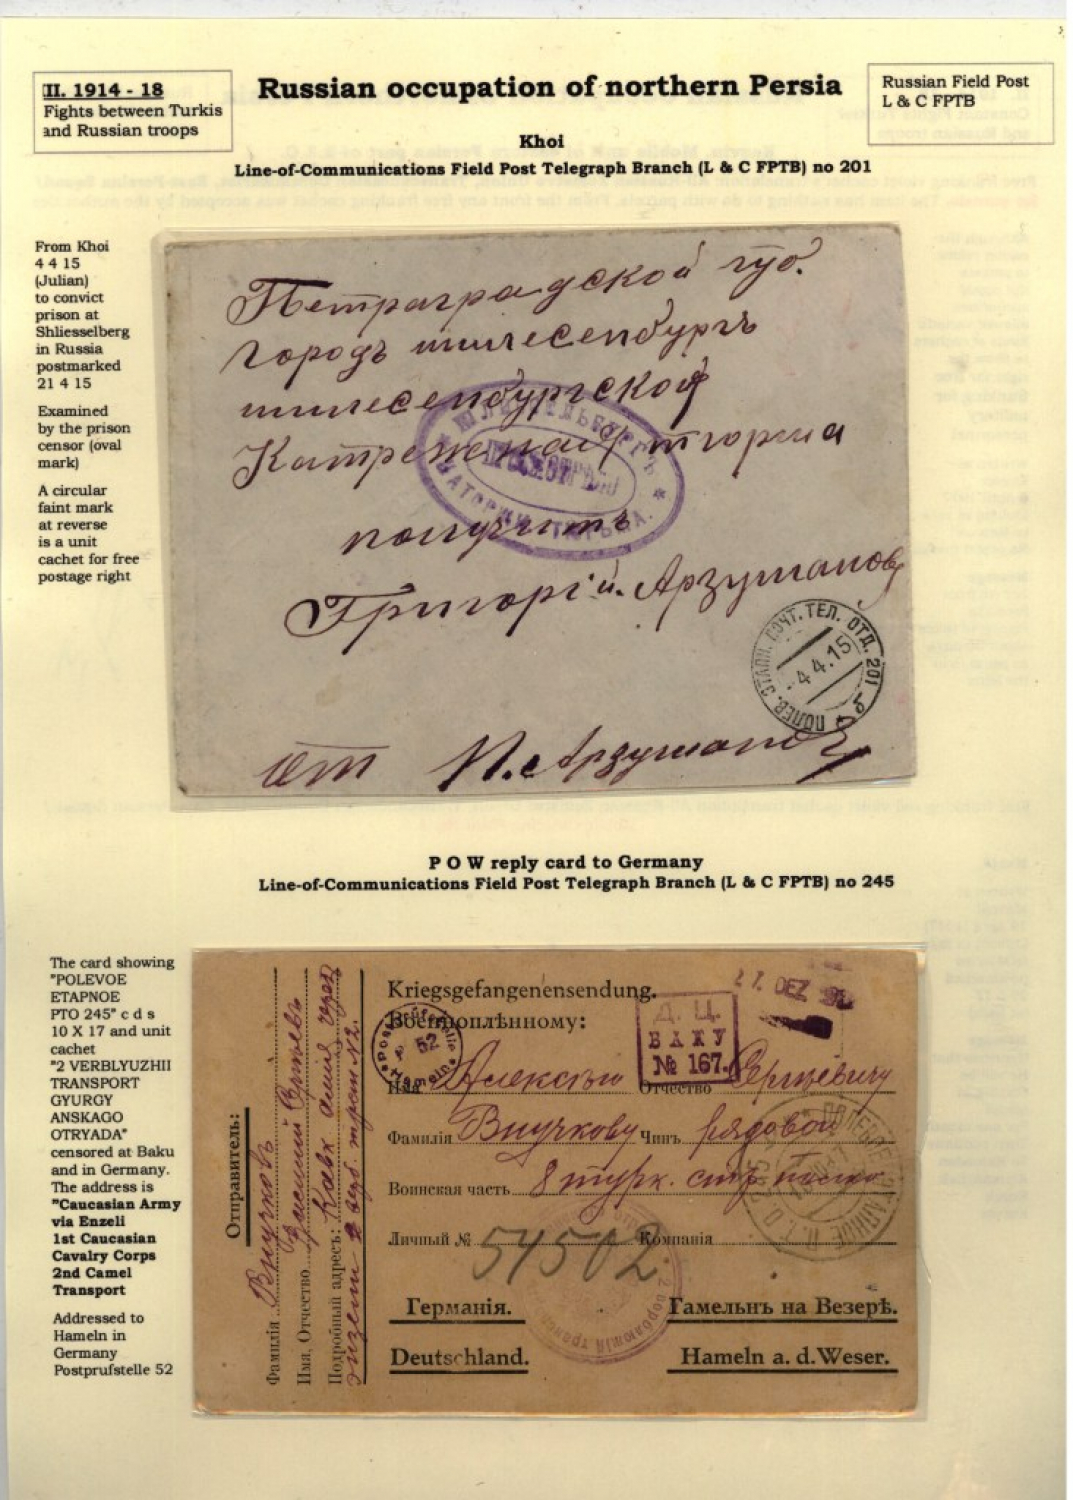 II. 1914 - 18
Fights between Turkis
and Russian troops
Russian occupation of northern Persia
Russian Field Post
L & C FPTB
Khoi
Line-of-Communications Field Post Telegraph Branch (L & C FPTB) no 201
From Khoi
4 4 15
(Julian)
to convict
prison at
Shliesselberg
in Russia
postmarked
21 4 15
Examined
by the prison
censor (oval
mark)
A circular
faint mark
at reverse
is a unit
cachet for free
postage right
Петраградской губ.
городъ шлисенбургъ
шлисенбургской
получить
Григорій Арзуманов
ПОЛЕВ. ЭТАПН. ПОЧТ. ТЕЛ. ОТД. 201
-4.4.15
От И. Арзуманов
P O W reply card to Germany
Line-of-Communications Field Post Telegraph Branch (L & C FPTB) no 245
The card showing
"POLEVOE
ETAPNOE
PTO 245" c d s
10 X 17 and unit
cachet
"2 VERBLYUZHII
TRANSPORT
GYURGY
ANSKAGO
OTRYADA"
censored at Baku
and in Germany.
The address is
"Caucasian Army
via Enzeli
1st Caucasian
Cavalry Corps
2nd Camel
Transport
Addressed to
Hameln in
Germany
Postprufstelle 52
Отправитель:
Фамилія Внучковъ
Имя, Отчество
Подробный адресъ:
Kriegsgefangenensendung.
Военноплѣнному:
Postprüfstelle
52
Hameln
27. DEZ
Д. Ц.
БАКУ
№ 167.
Имя Алексѣю Отчество Сергѣевичу
Фамилія Внучкову Чинъ рядовой
Воинская часть 8 турк. стр.
Личный № 54502 Компанія
Германія. Гамельнъ на Везерѣ.
Deutschland. Hameln a. d. Weser.